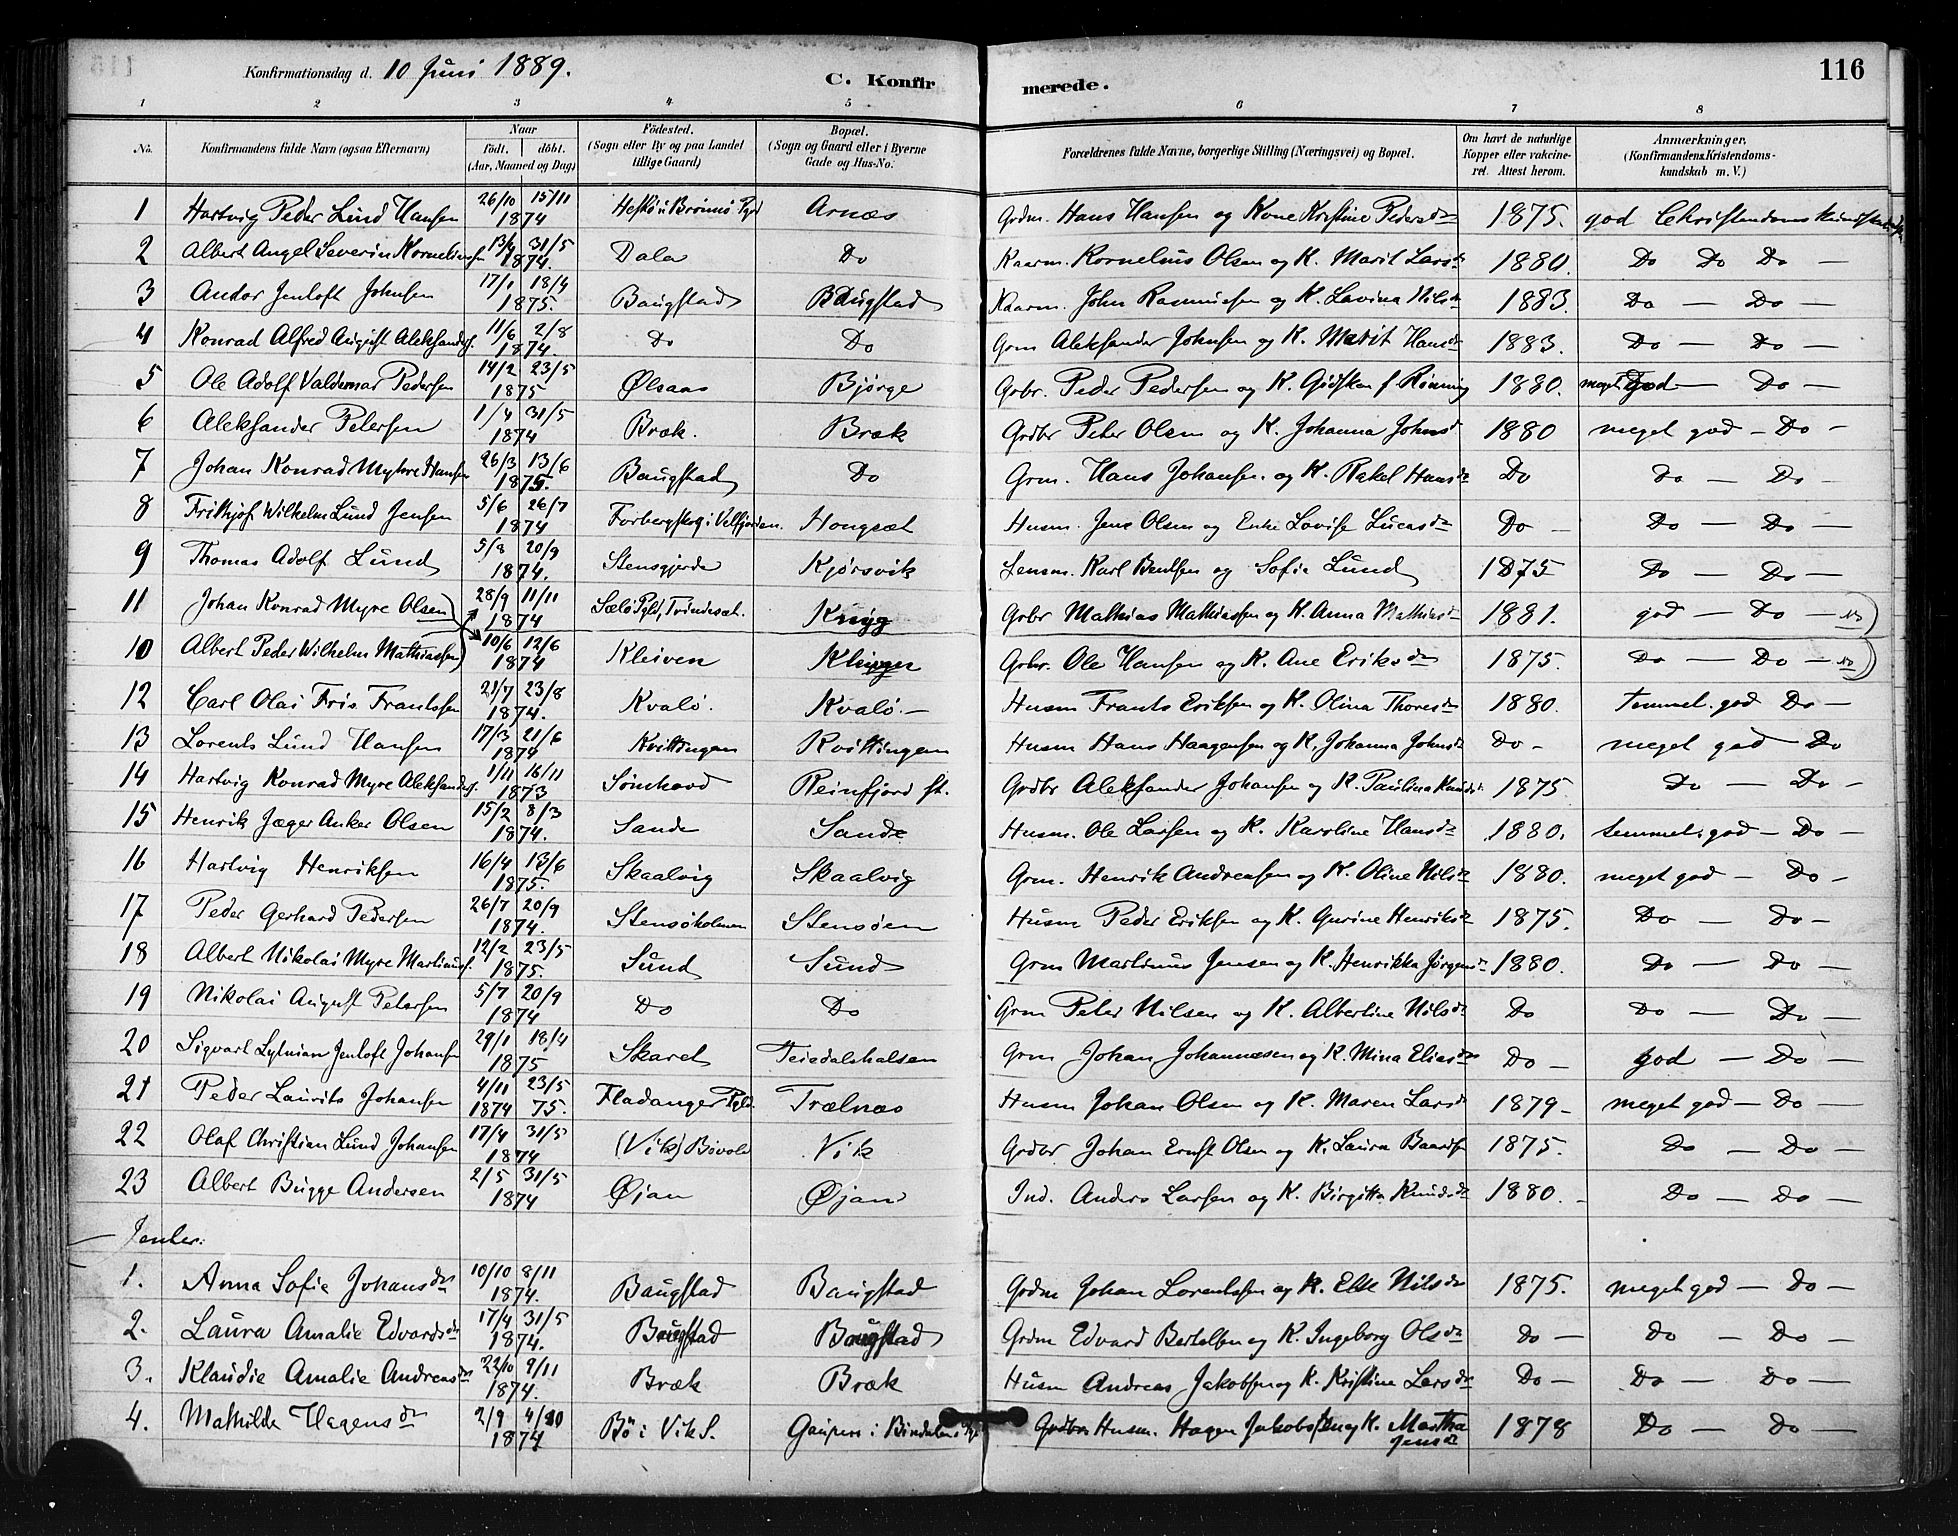 Konfirmationsdag d. 10 Juni 1889. C. Konfirmerede. 116
1 2 3 4 5 6 7 8
No. Konfirmandens fulde Navn (ogsaa Efternavn) Naar födt. döbt. (Aar, Maaned og Dag) Födested. (Sogn eller By og paa Landet tillige Gaard) Bopæl. (Sogn og Gaard eller i Byerne Gade og Hus-No. Forældrenes fulde Navne, borgerlige Stilling (Næringsvei) og Bopæl. Om havt de naturlige Kopper eller vakcineret. Attest herom. Anmærkninger. (Konfirmandens Kristendomskundskab m. V.)
1 Hartvig Peder Lund Hansen 26/10 15/11 1874 i Brönnö Pgld Arnæs Grdm. Hans Hansen og Kone Kristine Pedersdr 1875. god Christendomskundskab
2 Albert Angel Severin Korneliussen 13/4 31/5 1874. Dala Do Kaarm. Kornelius Olsen og K. Marit Larsdr 1880. Do Do Do —
3 Andor Jenloft Johnsen 17/1 18/4 1875. Baugstad Baugstad Kaarm. John Rasmussen og K. Lavina Nilsdr 1883. Do — Do —
4 Konrad Alfred August Aleksanders. 11/6 2/8 1874. Do Do Grm Aleksander Johnsen og K. Marit Hansdr 1883. Do — Do —
5 Ole Adolf Valdemar Pedersen 14/2 23/5 1875 Ølsaas Bjørge Grbr. Peder Pedersen og K. f. Rönning 1880. meget god — Do —
6 Aleksander Petersen 1/4 31/5 1874 Bræk. Bræk Grdbr Peter Olsen og K. Johanna Johnsd 1880 meget god — Do —
7 Johan Konrad Myhre Hansen 26/3 13/6 1875. Baugstad Do Grm. Hans Johansen og K. Rakel Hansdr Do Do — Do —
8 Frithjof Wilhelm Lund Jensen 5/6 26/7 1874 Forbergskog i Velfjorden. Hongsæt Husm. Jens Olsen og Enke Lovise Lucasdr Do — Do — Do —
9 Thomas Adolf Lund 5/8 20/9 1874. Stensgjerde Kjørsvik Lensm. Karl Bentsen og Sofie Lund 1875 Do — Do —
11 Johan Konrad Myre Olsen 28/9 11/11 1874 Grbr Mathias Mathiassen og K. Anna Mathiasdr 1881. god — Do —
10 Albert Peder Wilhelm Mathiassen 10/6 12/6 1874 Kleiven Grbr. Ole Hansen og K. Ane Eriksdr 1875. Do — Do —
12 Carl Olai Fris Frantssen 21/7 23/8 1874. Kvalö. Kvalö. — Husm Frants Eriksen og K. Olina Thoresdr 1880. temmel. god Do —
13 Lorents Lund Hansen 17/3 21/6 1874 Kvittingen Kvittingen Husm Hans Haagensen og K. Johanna Johnsdr Do — meget god — Do
14 Hartvig Konrad Myre Aleksanders. 1/11 16/11 1873 Sömhovd Reinfjord Grdbr Aleksander Johansen og K. Paulina Knudsdr 1875 Do — Do —
15 Henrik Jæger Anker Olsen 15/2 8/3 1874. Sande Sande Husm. Ole Larsen og K. Karoline Hansdr 1880. temmel. god — Do —
16 Hartvig Henriksen 16/4 13/6 1875. Skaalvig Skaalvig Grm. Henrik Andreassen og K. Oline Nilsdr 1880. meget god — Do —
17 Peder Gerhard Pedersen 26/7 20/9 1874. Stensökolmen Stensöen Husm Peder Eriksen og K. Gurine Henriksdr 1875. Do — Do —
18 Albert Nikolai Myre Martinuss. 12/2 23/5 1875. Sund Sund Grm Martinus Jensen og K. Henrikka Jørgensdr 1880. Do — Do —
19 Nikolai August Petersen 5/7 20/9 1874 Do Do Grm Peter Nilsen og K. Albertine Nilsdr Do Do — Do —
20 Sigvart Jenloft Johansen 29/1 18/4 1875 Skaret Teiedalshalsen Grm Johan Johannesen og K. Mina Eliasdr Do — god — Do —
21 Peder Laurits Johansen 4/11 1874 23/5 75. Fladanger Pgld. Trælnæs Husm Johan Olsen og K. Maren Larsdr 1879 — meget god — Do —
22 Olaf Christian Lund Johansen 17/4 31/5 1874 (Vik) Vik Grdbr Johan Ernst Olsen og K. Laura Baardsen 1875. Do — Do —
23 Albert Bugge Andersen 2/5 31/5 1874 Øjan Øjan Ind. Anders Larsen og K. Birgitta Knudsdr 1880. — Do — Do —
Jenter:
1. Anna Sofie Johansdr 10/10 8/11 1874. Baugstad Baugstad Grdm Johan Lorentssen og K. Else Nilsdr 1875. meget god — Do —
2. Laura Amalie Edvardsdr 17/4 31/5 1874. Baugstad Baugstad Grdm Edvard Bertelsen og K. Ingeborg Olsdr Do — Do — Do —
3. Klaudie Amalie Andreasdr 22/10 9/11 1874. Bræk Bræk Husm Andreas Jakobsen og K. Kristine Larsdr Do — Do — Do —
4. Mathilde Hagensdr 2/9 4/10 1874 Bö i Vik S. i Bindalen Husm. Hagen Jakobsen og K. Martha Jensdr 1878 Do — Do —